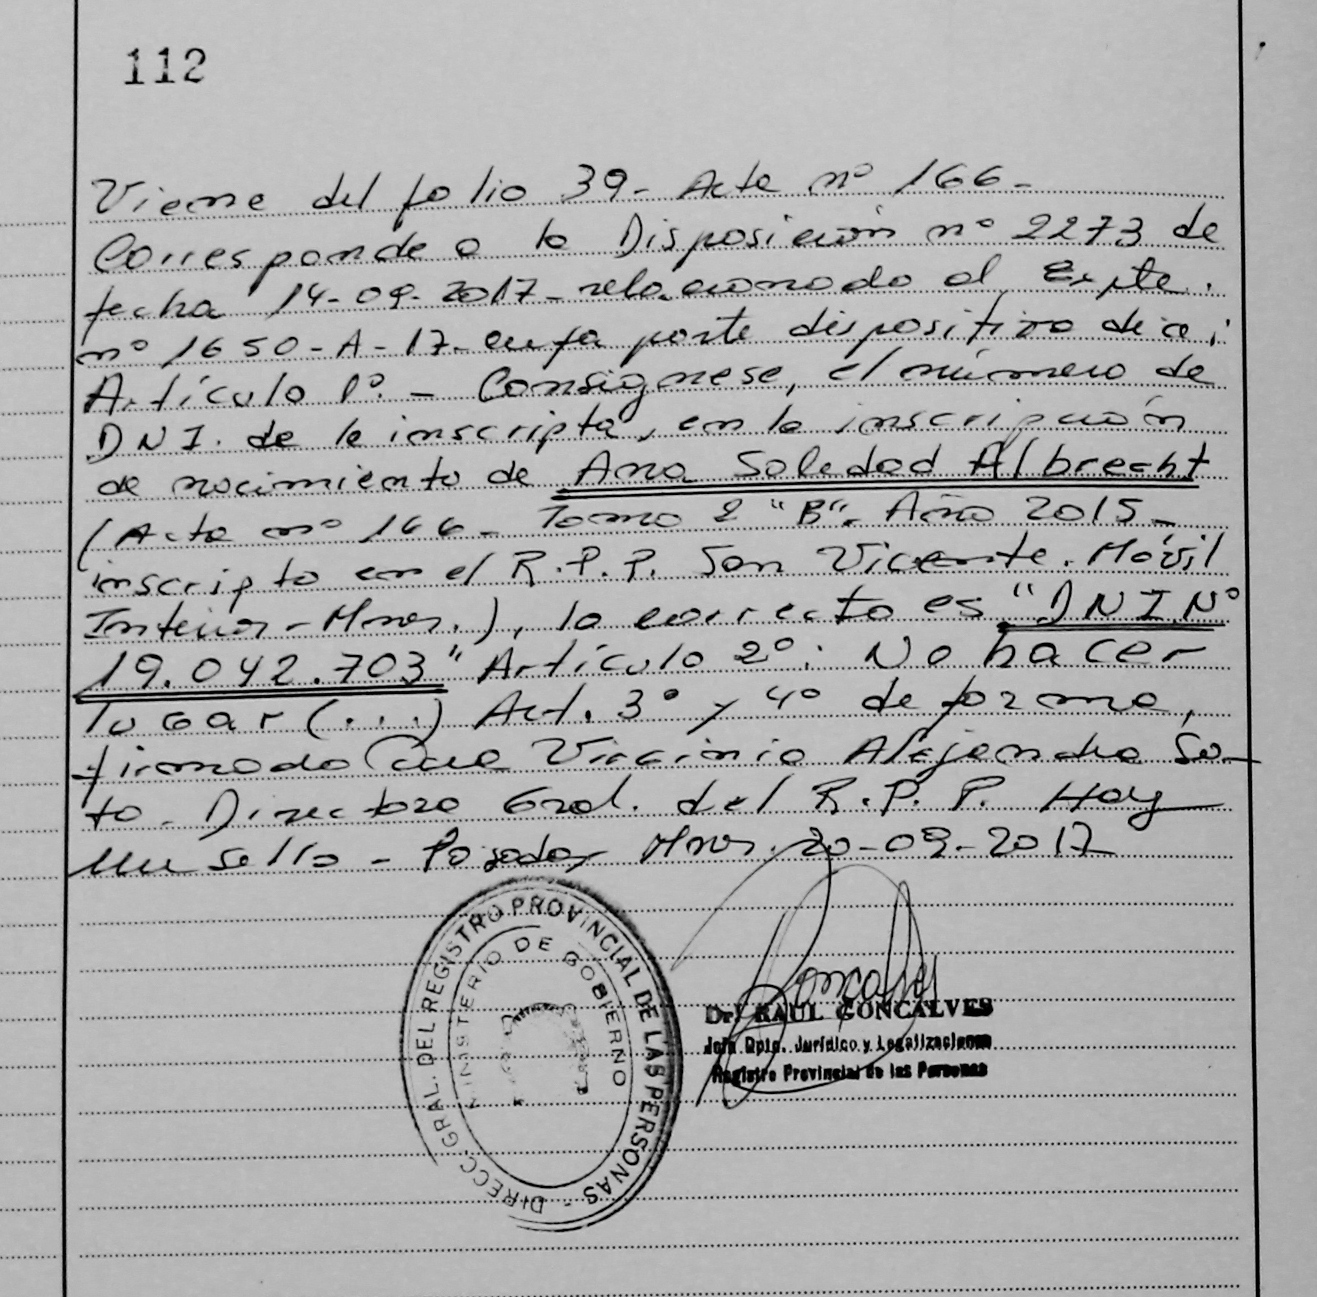 112
Viene del folio 39- Acta nº 166-
Corresponde a la Disposición nº 2273 de
fecha 14-09-2017- relacionado al Expte.
nº 1650-A-17- cuya parte dispositiva dice:
Artículo 1º.- Consígnese, el número de
DNI. de la inscripta, en la inscripción
de nacimiento de Ana Soledad Albrecht
(Acta nº 166- Tomo 2 "B". Año 2015-
inscripto en el R.P.P. San Vicente. Móvil
Interior-Mnes.), lo correcto es "DNI Nº
19.042.703" Artículo 2º: No hacer
lugar (...) Art. 3º y 4º de forma,
firmado Virginia Alejandra So-
to- Directora Gral. del R.P.P. Hay
un sello- Posadas Mnes. 20-09-2017
DIRECC. GRAL. DEL REGISTRO PROVINCIAL DE LAS PERSONAS -
MINISTERIO DE GOBIERNO
Dr. RAUL GONCALVES
Jefe Dpto. Jurídico y Legalizaciones
Registro Provincial de las Personas